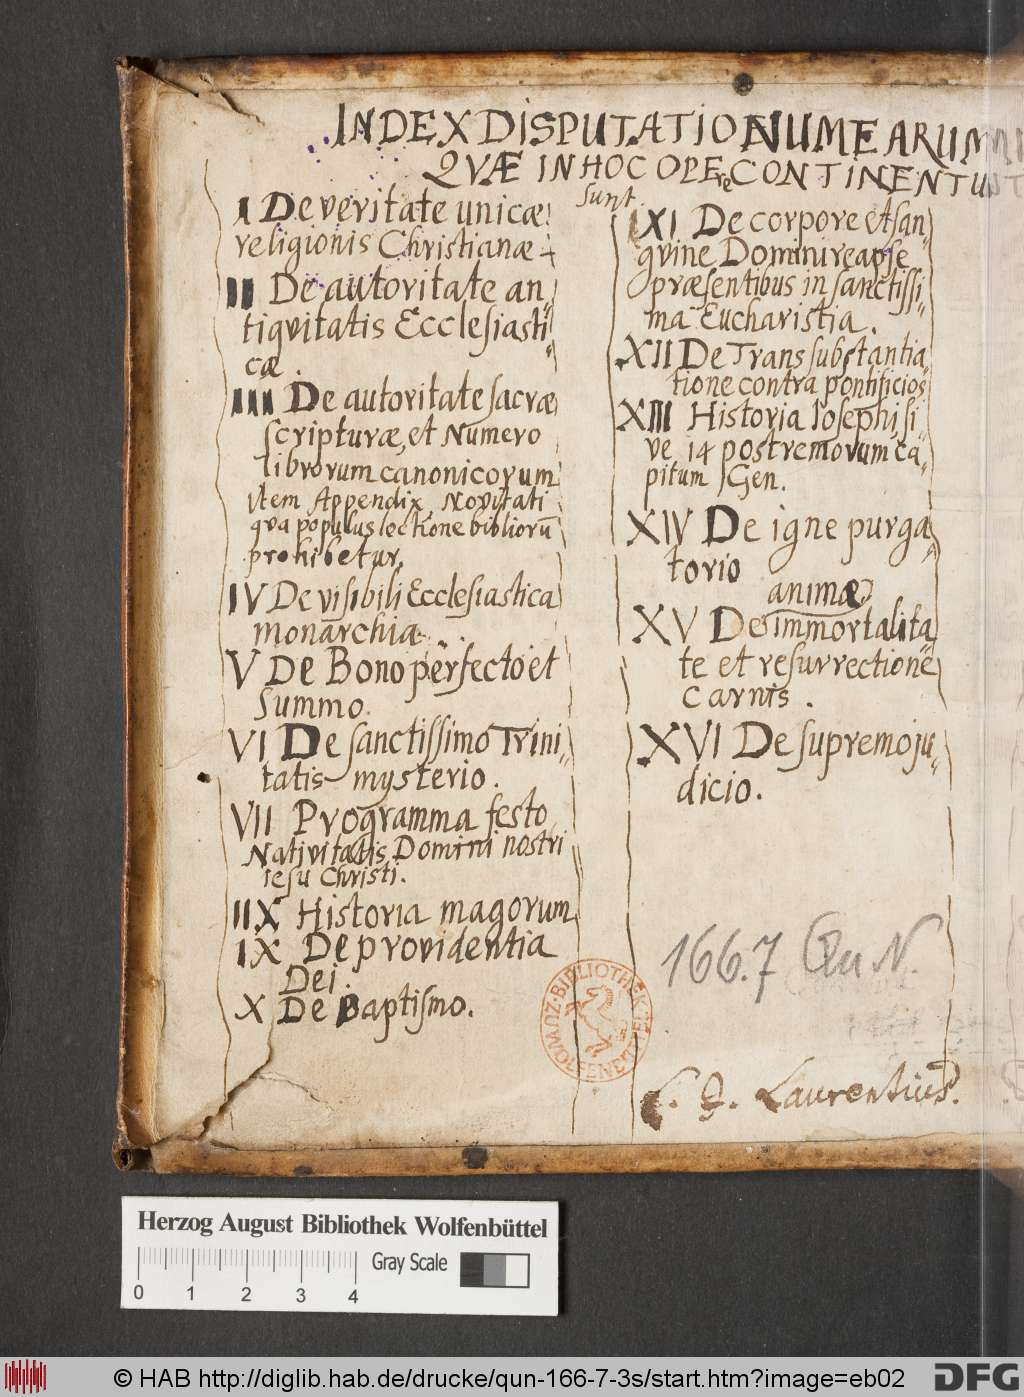 INDEX DISPUTATIONUM EARUM
QVÆ IN HOC OPERE CONTINENTU
sunt.
I De veritate unicæ
religionis Christianæ
II De autoritate an„
tiqvitatis Ecclesiasti„
cæ.
III De autoritate sacræ
scripturæ, et Numero
librorum canonicorum
Item Appendix, Novitati
qva populus lectione bibliorū
prohibetur.
IV De visibili Ecclesiastica
monarchia.
V De Bono perfecto et
summo.
VI De sanctissimo Trini„
tatis mysterio.
VII Programma festo
Nativitatis Domini nostri
iesu Christi.
IIX Historia magorum
IX De providentia
Dei.
X De Baptismo.
XI De corpore et san„
gvine Domini reapse
præsentibus in sanctissi„
ma Eucharistia.
XII De Transsubstantia„
tione contra pontificios
XIII Historia Iosephi, si„
ve 14 postremorum ca„
pitum Gen.
XIV De igne purga„
torio
animæ
XV De immortalita„
te et resurrectione
carnis.
XVI De supremo ju„
dicio.
166.7 Qu N.
BIBLIOTHEK ZU WOLFENBÜTTEL
L. Laurentius.
Herzog August Bibliothek Wolfenbüttel
Gray Scale
0 1 2 3 4
© HAB http://diglib.hab.de/drucke/qun-166-7-3s/start.htm?image=eb02
DFG